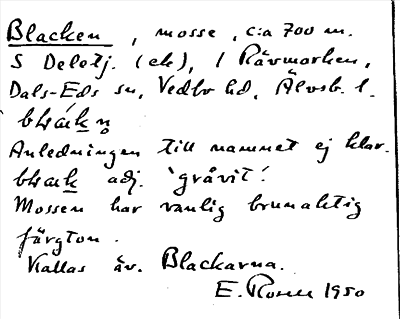 Blacken, mosse, c:a 700 m.
S Delotj. (ek), i Rävmarken,
Dals-Eds sn, Vedbo hd, Älvsb. l.
Anledningen till namnet ej klar.
adj. 'gråvit'.
Mossen har vanlig brunaktig
färgton.
Kallas äv. Blackarna.
E. Rosell 1950